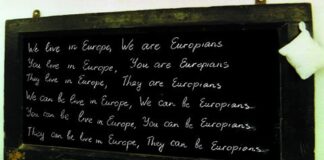 We live in Europe, We are Europians
You live in Europe, You are Europians
They live in Europe, They are Europians
We can be live in Europe, We can be Europians
You can be live in Europe, You can be Europians
They can be live in Europe, They can be Europians